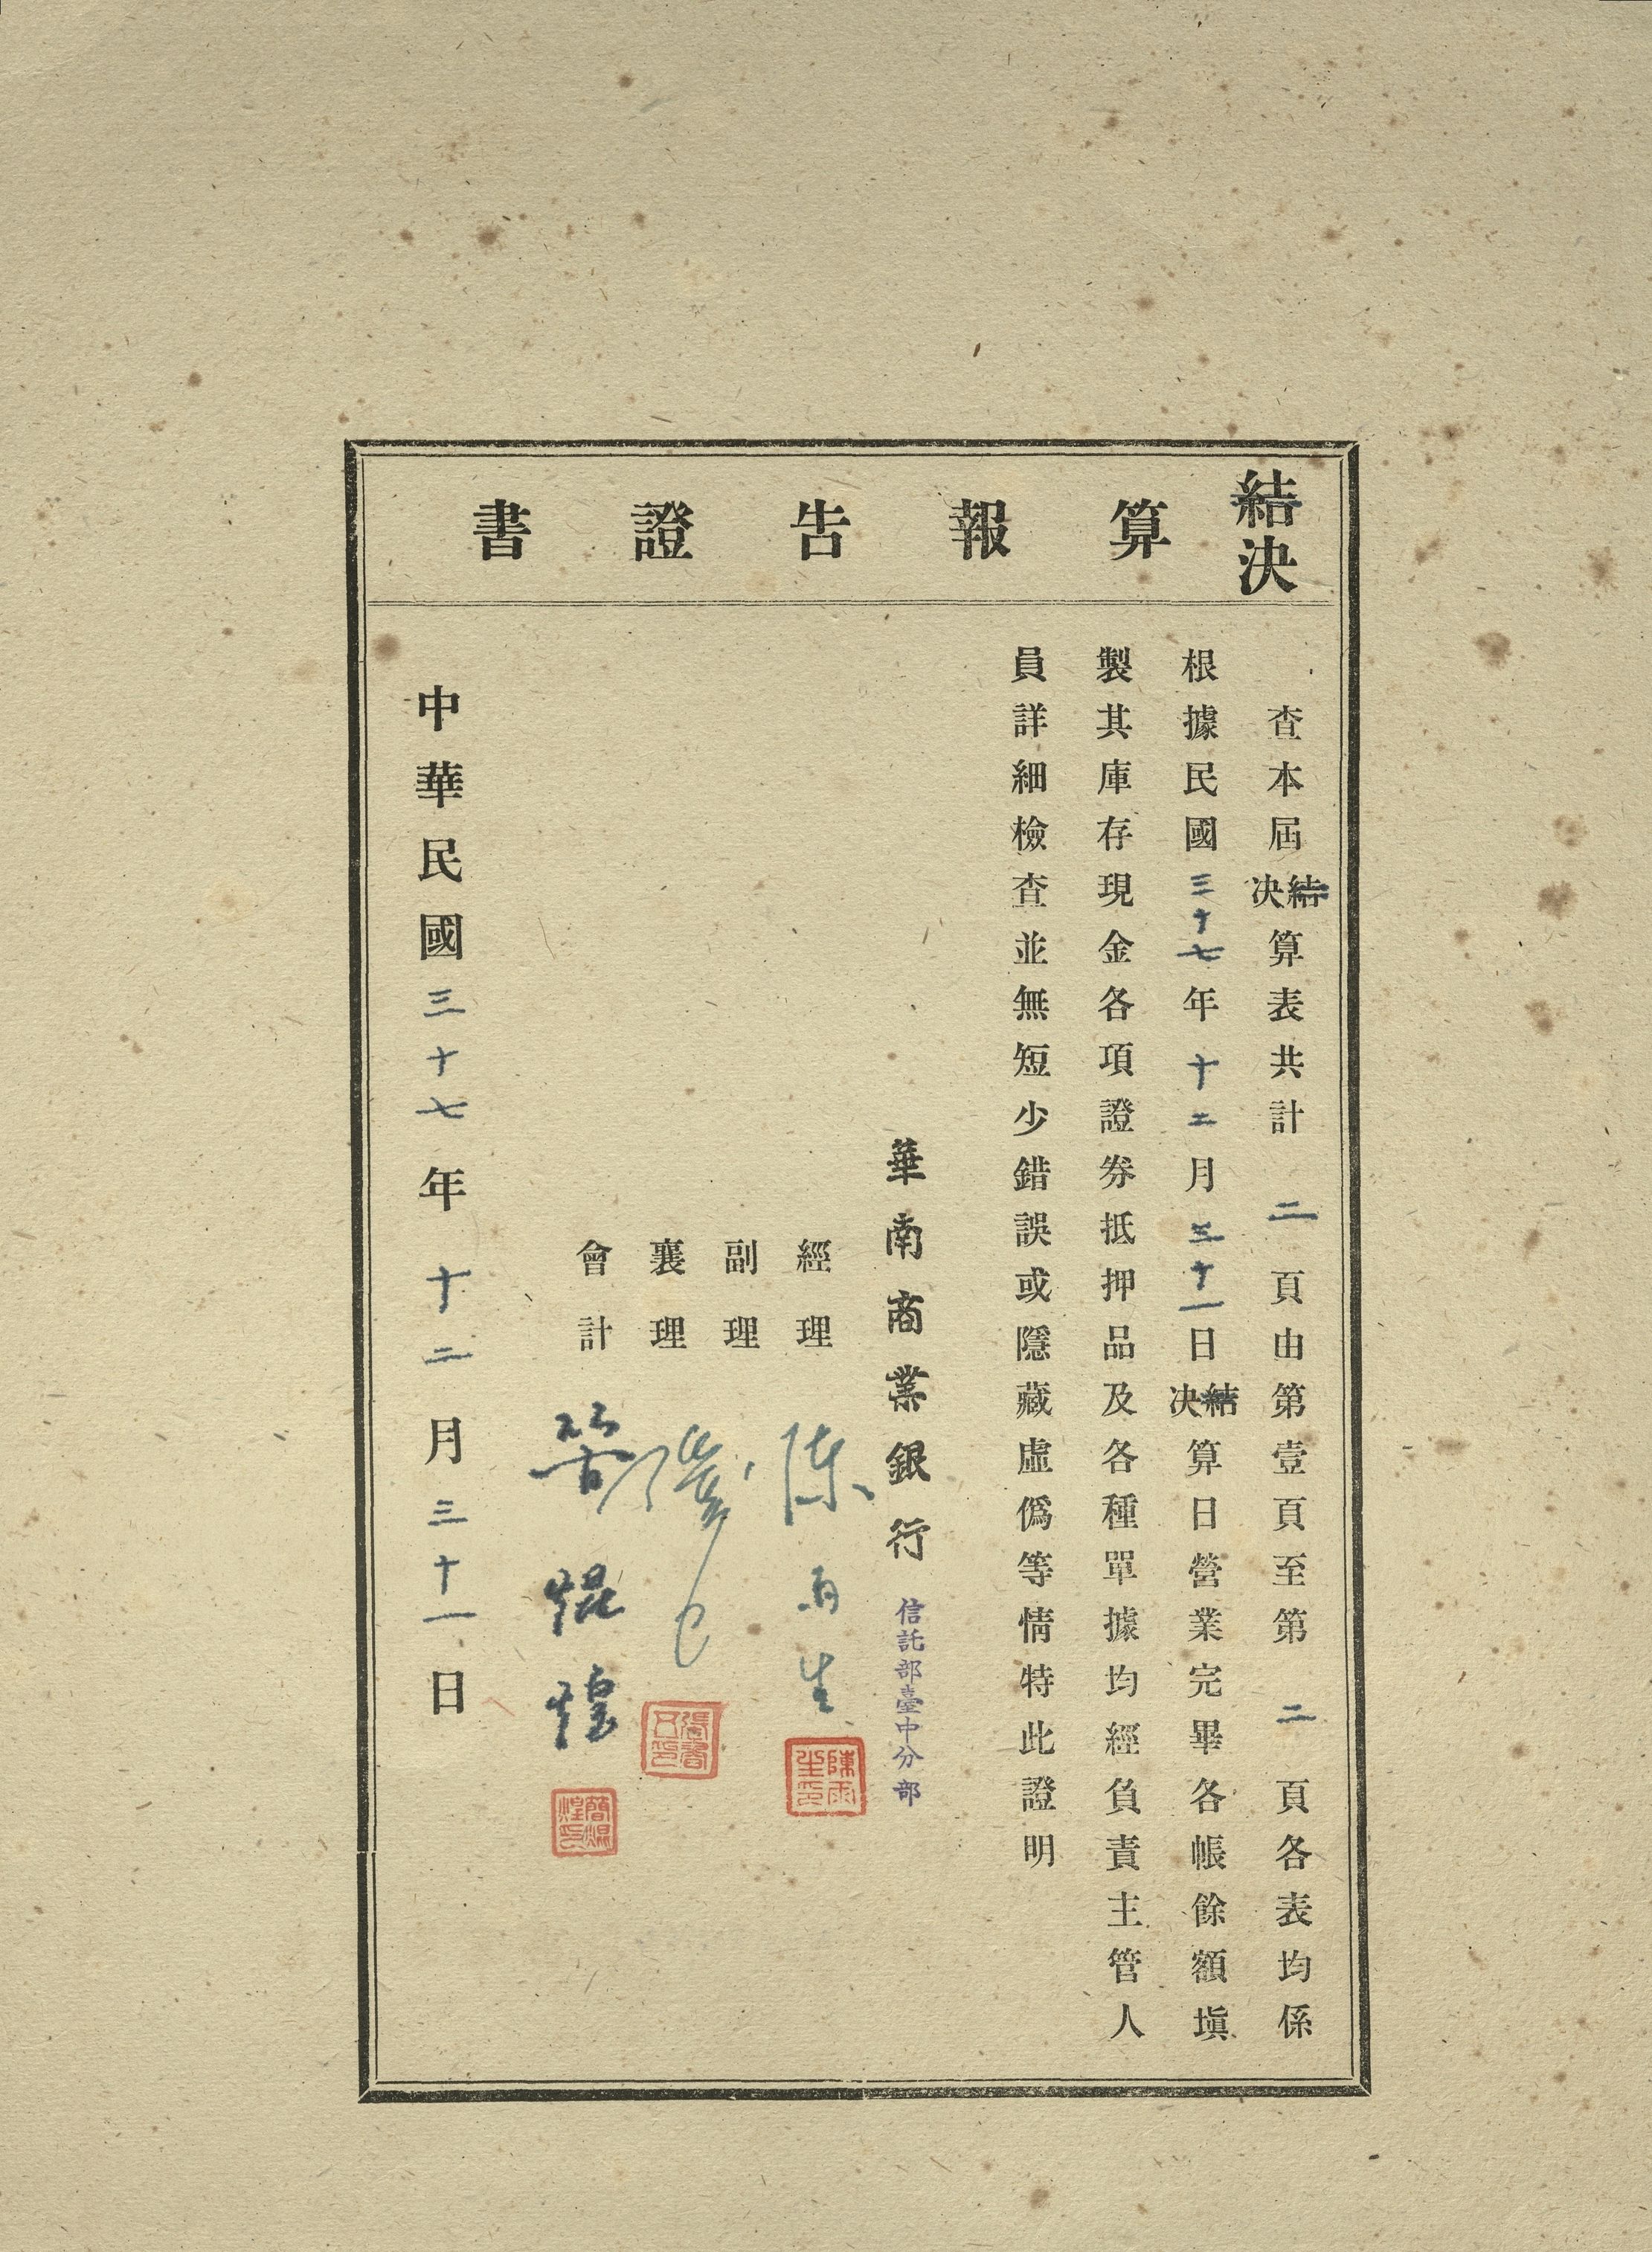 結決算報告證書
查本屆結決算表共計二頁由第壹頁至第二頁各表均係
根據民國三十七年十二月三十一日結決算日營業完畢各帳餘額塡
製其庫存現金各項證券抵押品及各種單據均經負責主管人
員詳細檢查並無短少錯誤或隱藏虛僞等情特此證明
華南商業銀行信託部臺中分部
經理 陳雨生
陳雨生印
副理
襄理
會計 簡焜煌
簡焜煌印
中華民國三十七年十二月三十一日